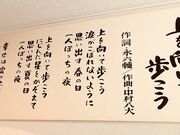 上を向いて
歩こう
作詞・永六輔/作曲・中村八大
上を向いて歩こう
涙がこぼれないように
思い出す春の日
一人ぽっちの夜
上を向いて歩こう
にじんだ星をかぞえて
思い出す夏の日
一人ぽっちの夜